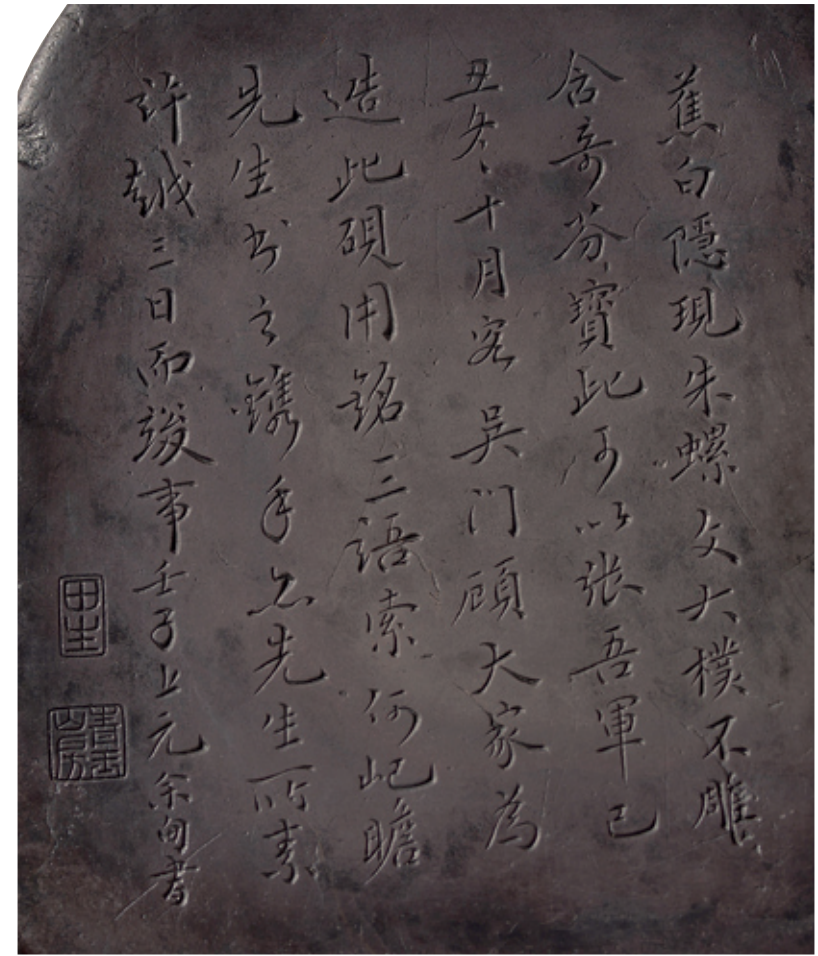 蕉白隱現朱螺文大樸不雕
含奇芬寶此可以张吾軍己
丑冬十月客吴门顾大家為
造此硯用銘三語索何屺瞻
先生书之鐫手亦先生所素
許越三日而竣事壬子上元余甸書
田生
山房